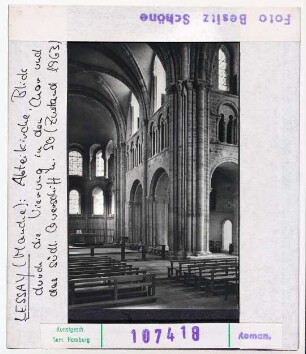 Foto Besitz Schöne
LESSAY (Manche): Abteikirche, Blick
durch die Vierung in den Chor und
das südl. Querschiff n. SO (Zustand 1963)
Kunstgesch.
Sem. Hamburg
107418
Roman.